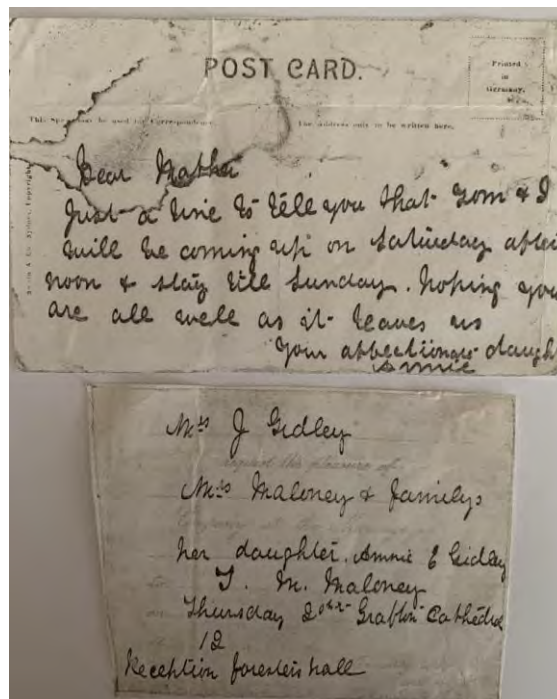 POST CARD.
Printed
in
Germany.
This Space may be used for Correspondence.
The address only to be written here.
Dear Mother
Just a line to tell you that Tom & I
will be coming up on Saturday after
noon & stay till Sunday. Hoping you
are all well as it leaves us
Your affectionate daught
Annie
Mrs J Gidley
request the pleasure of
Mrs Maloney & Familys
Company at the
her daughter. Annie E Gidley
to
T. M. Maloney
on Thursday 20th Grafton Cathedral
12
Reception foresters hall